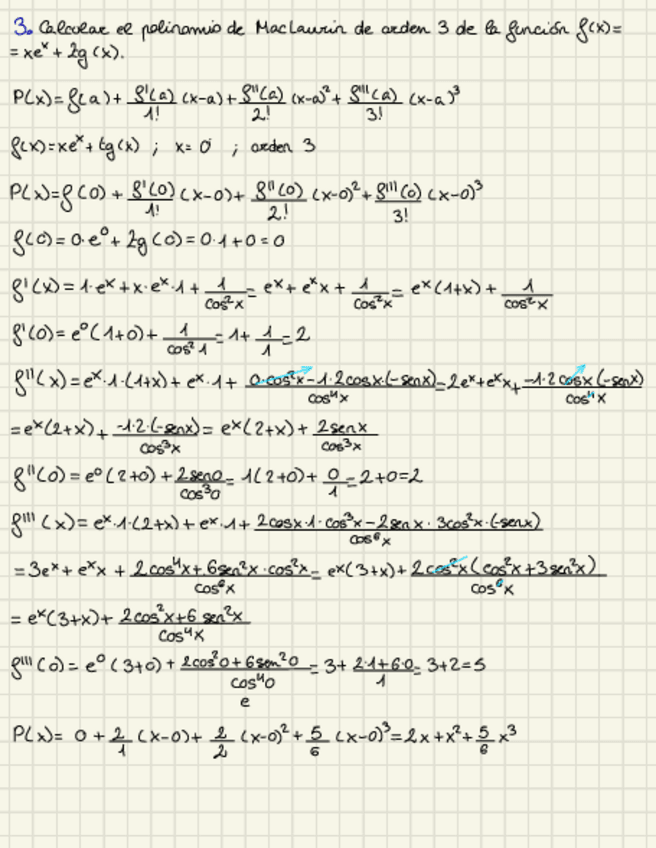 3. Calcular el polinomio de MacLaurin de orden 3 de la función f(x)=
= xeˣ + 2g (x).
P(x)= f(a) + f'(a)/1! (x-a) + f''(a)/2! (x-a)² + f'''(a)/3! (x-a)³
f(x)=xeˣ + tg(x) ; x= 0 ; orden 3
P(x)= f(0) + f'(0)/1! (x-0) + f''(0)/2! (x-0)² + f'''(0)/3! (x-0)³
f(0) = 0·e⁰ + 2g (0) = 0·1+0 = 0
f'(x) = 1·eˣ + x·eˣ·1 + 1/cos²x = eˣ + eˣx + 1/cos²x = eˣ(1+x) + 1/cos²x
f'(0) = e⁰(1+0) + 1/cos²1 = 1 + 1/1 = 2
f''(x) = eˣ·1·(1+x) + eˣ·1 + 0·cos²x-1·2cosx·(-senx)/cos⁴x = 2eˣ+eˣx + -1·2cosx(-senx)/cos⁴x
= eˣ(2+x) + -1·2·(-senx)/cos³x = eˣ(2+x) + 2senx/cos³x
f''(0) = e⁰(2+0) + 2sen0/cos³0 = 1(2+0) + 0/1 = 2+0=2
f'''(x) = eˣ·1·(2+x) + eˣ·1 + 2cosx·1·cos³x-2senx·3cos²x·(-senx)/cos⁶x
= 3eˣ + eˣx + 2cos⁴x+6sen²x·cos²x/cos⁶x = eˣ(3+x) + 2cos²x(cos²x+3sen²x)/cos⁶x
= eˣ(3+x) + 2cos²x+6sen²x/cos⁴x
f'''(0) = e⁰(3+0) + 2cos²0+6sen²0/cos⁴0 = 3 + 2·1+6·0/1 = 3+2=5
e
P(x) = 0 + 2/1 (x-0) + 2/2 (x-0)² + 5/6 (x-0)³ = 2x + x² + 5/6 x³